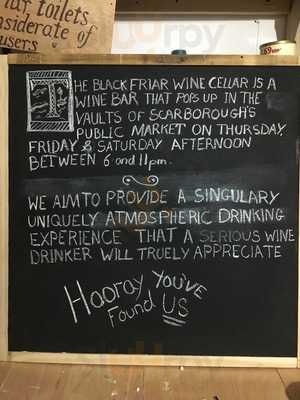 lar, toilets
nsiderate of
users
THE BLACK FRIAR WINE CELLAR IS A
WINE BAR THAT POPS UP IN THE
VAULTS OF SCARBOROUGH'S
PUBLIC MARKET ON THURSDAY,
FRIDAY & SATURDAY AFTERNOON
BETWEEN 6 and 11pm.
WE AIM TO PROVIDE A SINGULARY
UNIQUELY ATMOSPHERIC DRINKING
EXPERIENCE THAT A SERIOUS WINE
DRINKER WILL TRUELY APPRECIATE
Hooray YOU'VE
Found US